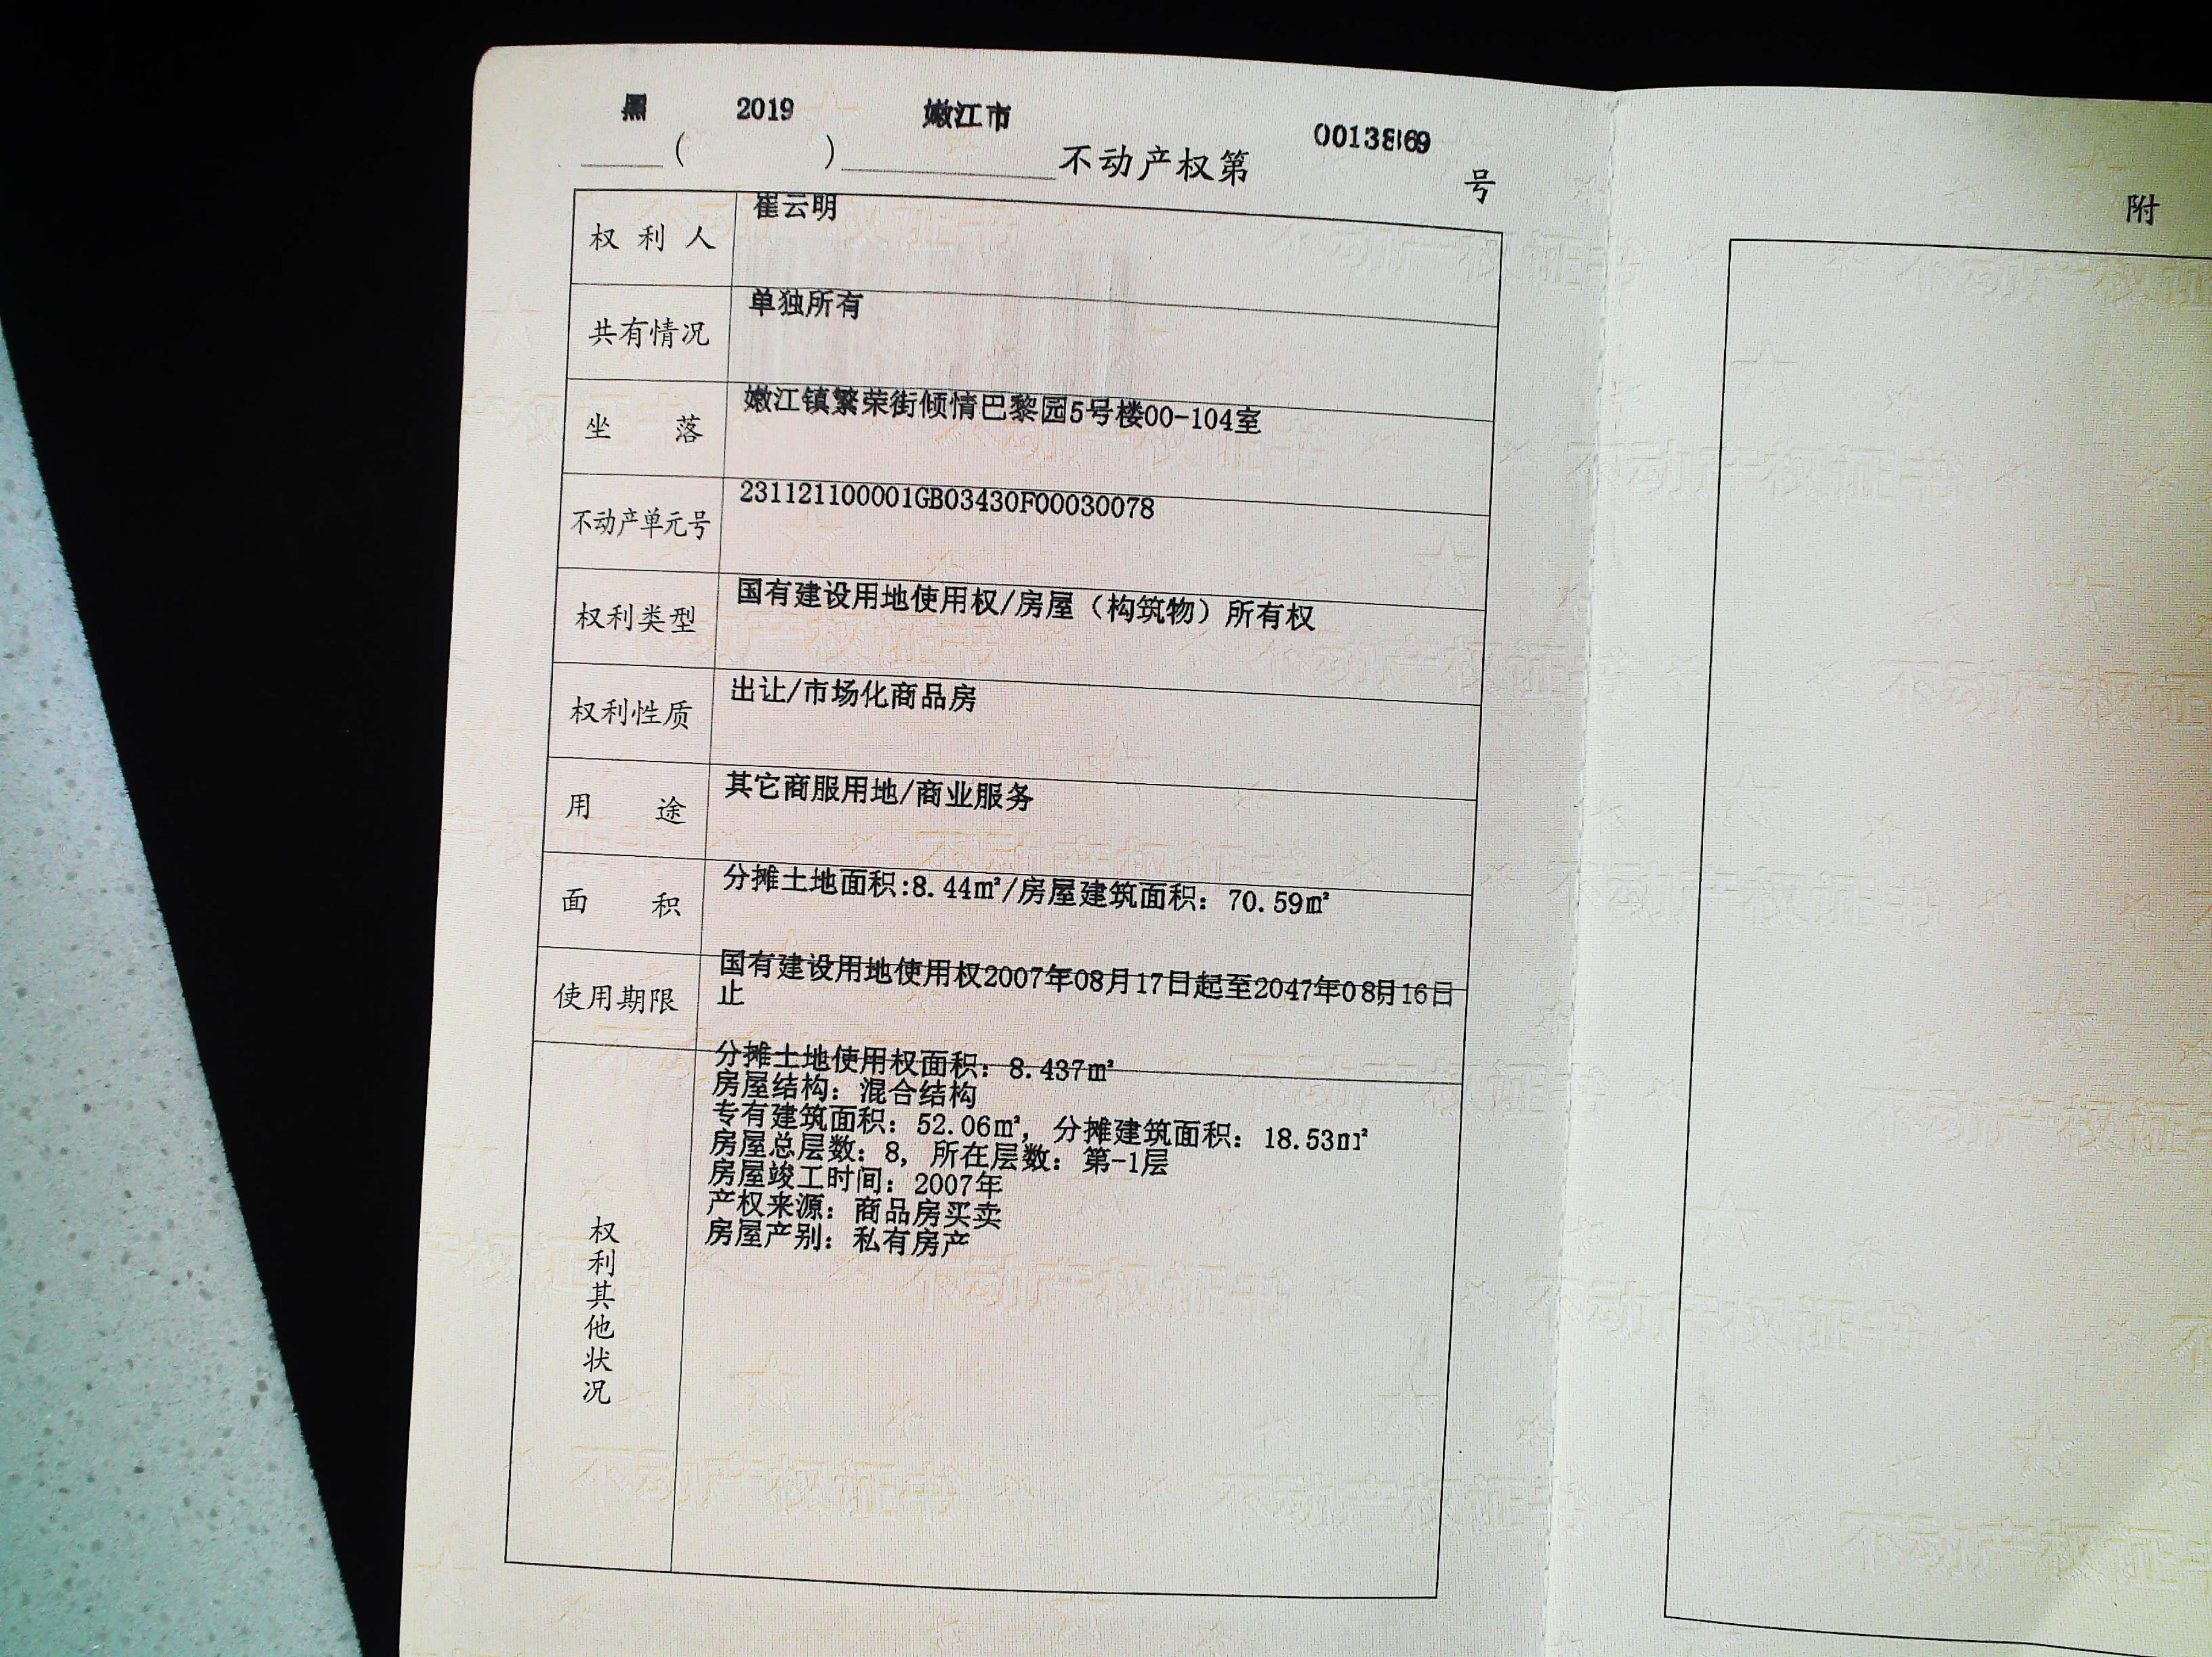 黑(2019)嫩江市不动产权第号
权利人 崔云明
共有情况 单独所有
坐落 嫩江镇繁荣街倾情巴黎园5号楼00-104室
不动产单元号 231121100001GB03430F00030078
权利类型 国有建设用地使用权/房屋（构筑物）所有权
权利性质 出让/市场化商品房
用途 其它商服用地/商业服务
面积 分摊土地面积:8.44㎡/房屋建筑面积：70.59㎡
使用期限 国有建设用地使用权2007年08月17日起至2047年08月16日
止
权利其他状况
分摊土地使用权面积：8.437㎡
房屋结构：混合结构
专有建筑面积：52.06㎡，分摊建筑面积：18.53㎡
房屋总层数：8，所在层数：第-1层
房屋竣工时间：2007年
产权来源：商品房买卖
房屋产别：私有房产
附
不动产权证书